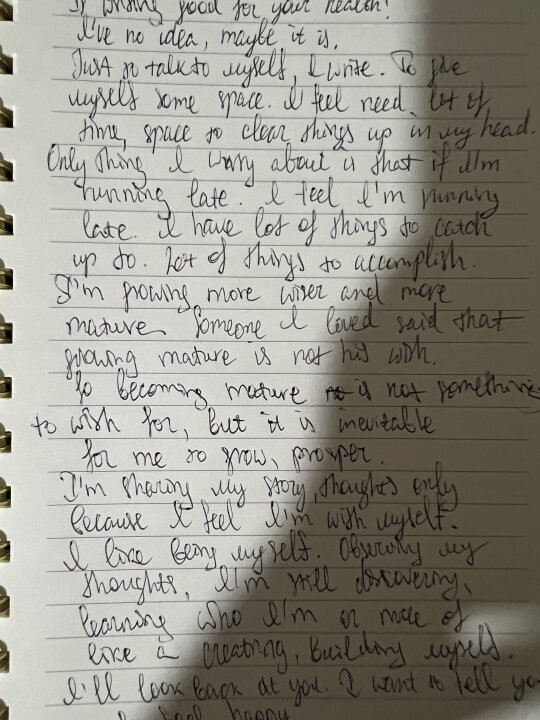 If writing good for your health?
I've no idea, maybe it is.
Just to talk to myself, I write. To give
myself some space. I feel need, lot of
time, space to clear things up in my head.
Only thing I worry about is that if I'm
running late. I feel I'm running
late. I have lot of things to catch
up to. Lot of things to accomplish.
I'm growing more wiser and more
mature. Someone I loved said that
growing mature is not his wish.
So becoming mature is not something
to wish for, but it is inevitable
for me to grow, prosper.
I'm sharing my story, thoughts only
because I feel I'm with myself.
I like being myself. Observing my
thoughts, I'm still discovering,
learning who I'm or more of
like a creating, building myself.
I'll look back at you. I want to tell you
I feel happy